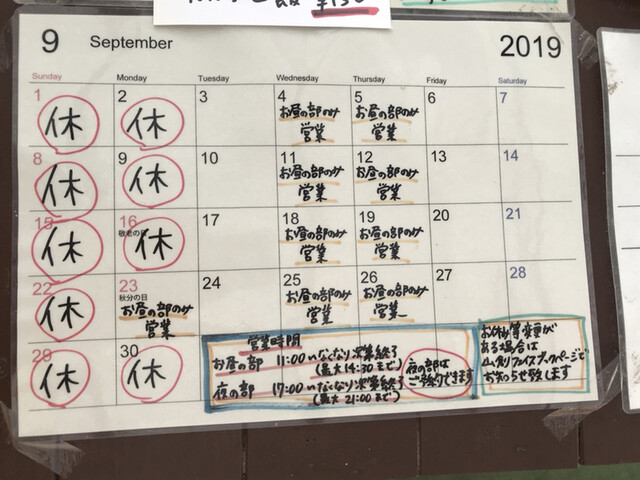 ¥150
9 September 2019
Sunday Monday Tuesday Wednesday Thursday Friday Saturday
1 2 3 4 5 6 7
休 休 お昼の部のみ お昼の部のみ
営業 営業
8 9 10 11 12 13 14
休 休 お昼の部のみ お昼の部のみ
営業 営業
15 16 17 18 19 20 21
敬老の日
休 休 お昼の部のみ お昼の部のみ
営業 営業
22 23 24 25 26 27 28
秋分の日
休 お昼の部のみ お昼の部のみ お昼の部のみ
営業 営業 営業
29 30
休 休
営業時間
お昼の部 11:00〜なくなり次第終了
(最大14:30まで)
夜の部 17:00〜なくなり次第終了
(最大21:00まで)
夜の部は
ご予約できます
お休み等変更が
ある場合は
フェイスブックページで
お知らせ致します